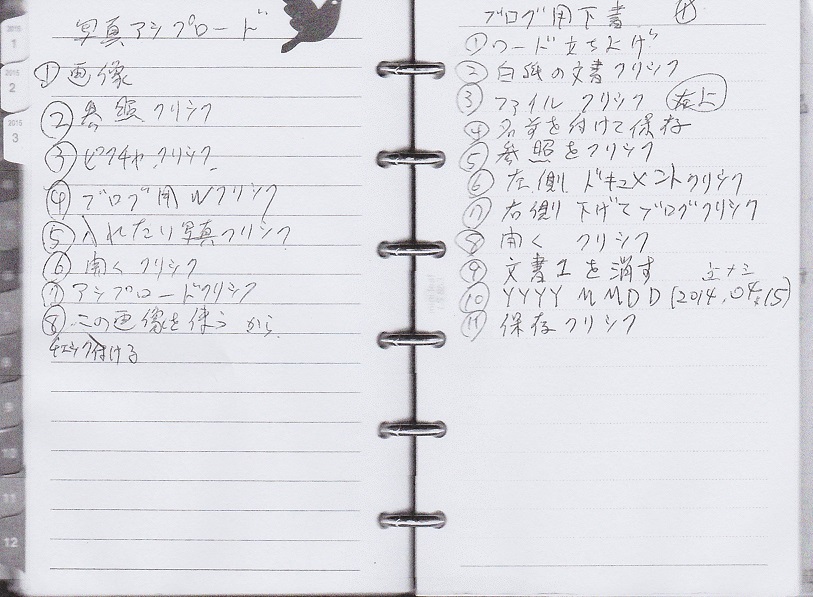 2015
1
2015
2
2015
3
9
10
11
12
写真アップロード
① 画像
② 参照 クリック
③ ピクチャ クリック
④ ブログ用Wクリック
⑤ 入れたい写真クリック
⑥ 開く クリック
⑦ アップロードクリック
⑧ この画像を使う から
チェック付ける
ブログ用下書
① ワード立ち上げ
② 白紙の文書クリック
③ ファイル クリック 左上
④ 名前を付けて保存
⑤ 参照をクリック
⑥ 左側 ドキュメントクリック
⑦ 右側 下げてブログクリック
⑧ 開く クリック
⑨ 文書1を消す
⑩ YYYY MMDD (2014.04.15)
⑪ 保存クリック